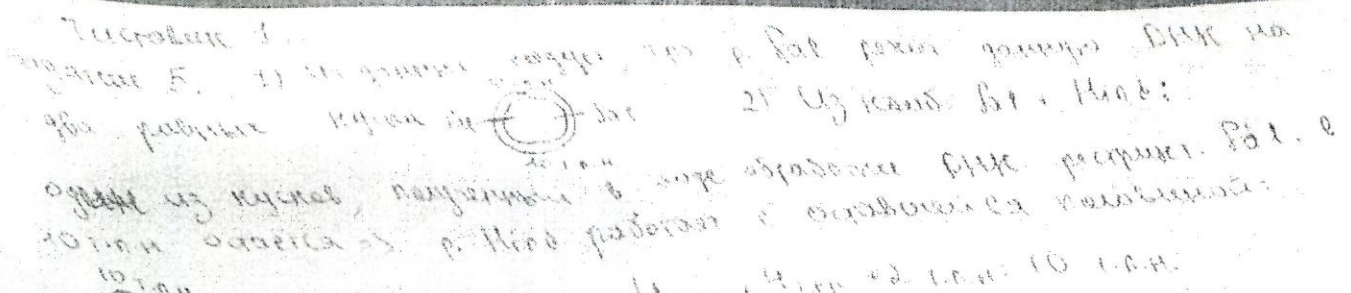 Чистовик 1.
задание 5. 1) Из данных следует, что р. Sal режет данную ДНК на
два равных куска Sal Sal 2) Из комб Sal + Hind:
10 т.п.н
один из кусков, полученный в ходе обработки ДНК рестрикт. Sal. в
10 т.п.н остается => р. Hind работает с оставшейся половиной:
10 т.п.н
+ 2 т.п.н = 10 т.п.н.